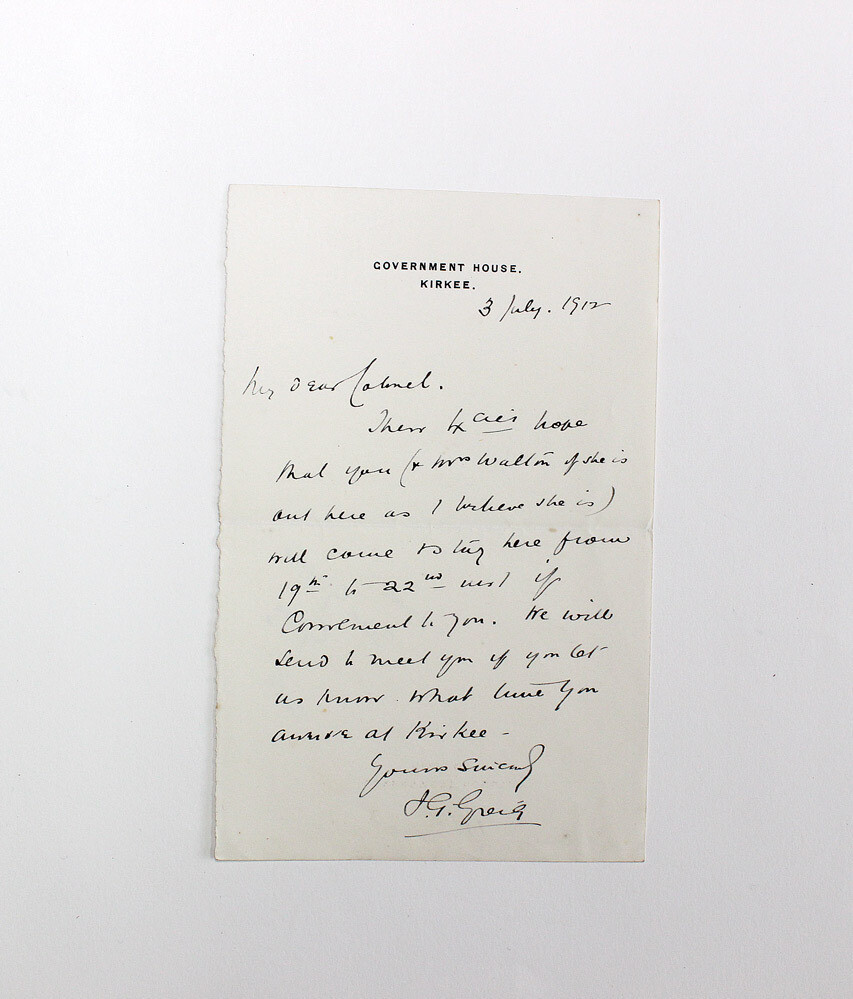 GOVERNMENT HOUSE.
KIRKEE.
3 July. 1912
My dear Colonel.
Their Ex cies hope
that you (& Mrs Walton if she is
out here as I believe she is)
will come to stay here from
19th to 22nd next if
Convenient to you. We will
send to meet you if you let
us know what time you
arrive at Kirkee -
Yours sincerely
J.G. Greig